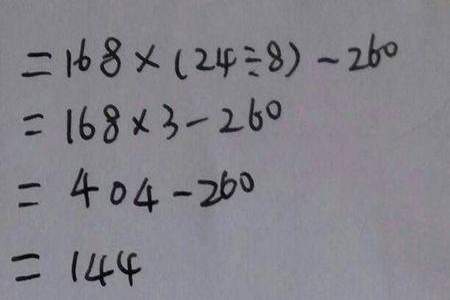 =168×(24÷8)-260
=168×3-260
=404-260
=144